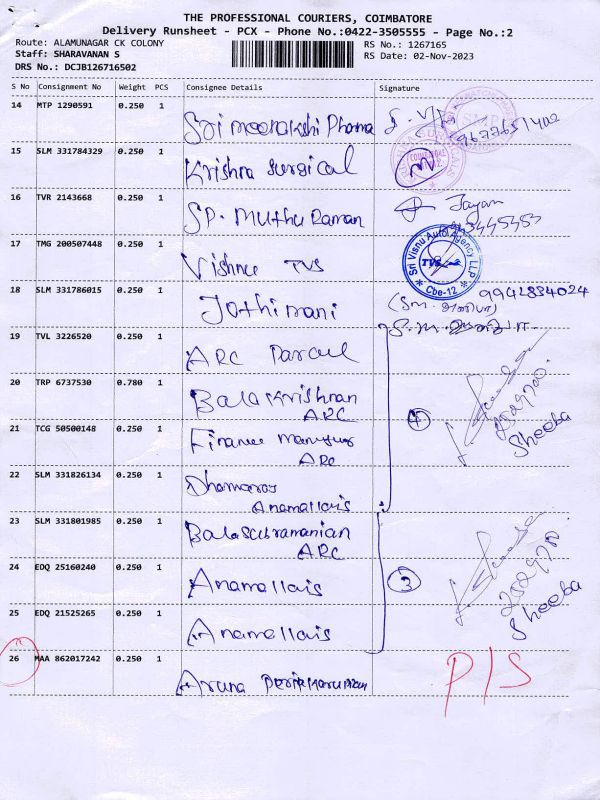 THE PROFESSIONAL COURIERS, COIMBATORE
Delivery Runsheet - PCX - Phone No.:0422-3505555 - Page No.:2
Route: ALAMUNAGAR CK COLONY
RS No.: 1267165
Staff: SHARAVANAN S
RS Date: 02-Nov-2023
DRS No.: DCJB126716502
S No Consignment No Weight PCS Consignee Details Signature
14 MTP 1290591 0.250 1 Sri meenakshi Pharma
9677651402
15 SLM 331784329 0.250 1 Krishna Surgical
16 TVR 2143668 0.250 1 SP. Muthu Raman Jayan
17 TMG 200507448 0.250 1 Vishnu TVS
Sri Visnu Auto Agency LLP
TVS
Cbe-12
18 SLM 331786015 0.250 1 Jothimani 9942834024
19 TVL 3226520 0.250 1 ARC Parcel
20 TRP 6737530 0.780 1 Balakrishnan
ARC
21 TCG 50500148 0.250 1 Finance manager
ARC
4
Sheeba
22 SLM 331826134 0.250 1 Dhanaraj
Anamallais
23 SLM 331801985 0.250 1 Balasubramanian
ARC
24 EDQ 25160240 0.250 1 Anamallais
3
Sheeba
25 EDQ 21525265 0.250 1 Anamallais
26 MAA 862017242 0.250 1 Aruna Periyakaruppan
P/S